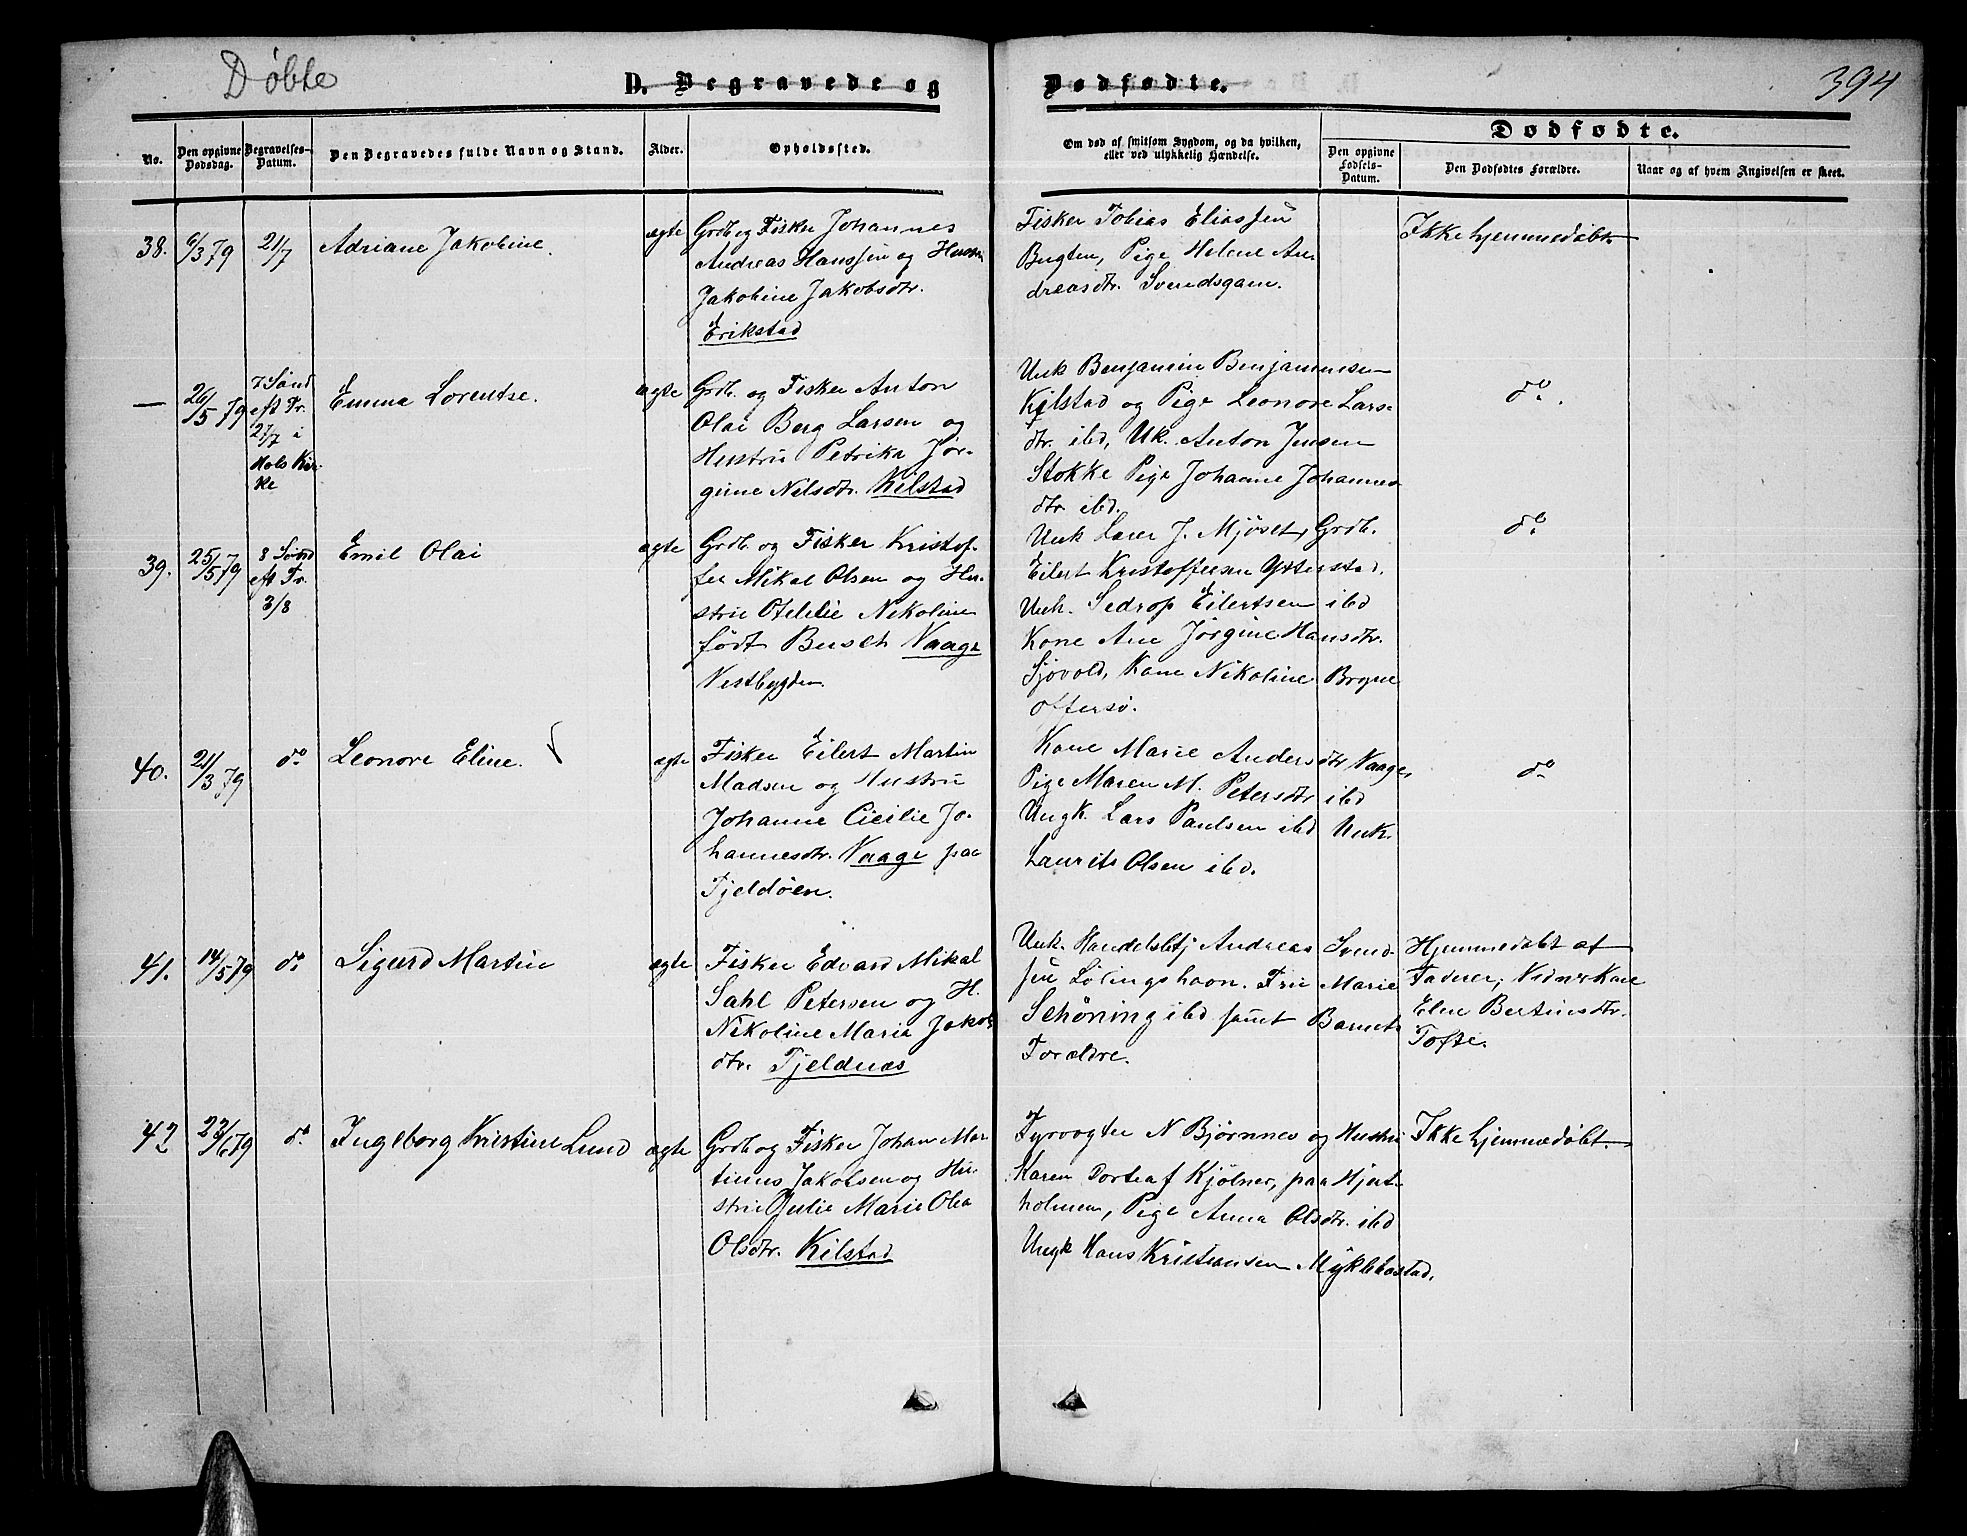 Døbte
D. Begravede og
Dødfødte.
394
No.
Den opgivne Dødsdag.
Begravelses-Datum.
Den Begravedes fulde Navn og Stand.
Alder.
Opholdssted.
Om død af smitsom Sygdom, og da hvilken, eller ved ulykkelig Hændelse.
Dødfødte.
Den opgivne Fødsels-Datum.
Den Dødfødtes Forældre.
Naar og af hvem Angivelsen er skeet.
38. 6/3 79 21/7 Adriane Jakobine. ægte
Grdb og Fisker Johannes
Andreas Hanssen og Hustru
Jakobine Jakobsdtr.
Erikstad
Fisker Tobias Eliassen
Bugten, Pige Helene An
dreasdtr. Svendsgam.
Ikke hjemmedøbt
— 26/5 79
7 Sønd
eft Tr.
27/7 i
Hols Kir-
ke
Emma Lorentse. ægte
Grdb. og Fisker Anton
Olai Berg Larsen og
Hustru Petrika Jør-
gine Nilsdtr. Kilstad
Unk Benjamin Benjaminsen
Kilstad og Pige Leonore Lars-
dtr. ibd, Uk. Anton Jensen
Stokke Pige Johanne Johannes
dtr ibd.
do.
39. 25/5 79
8 Sønd
eft Tr.
3/8
Emil Olai ægte
Grdb. og Fisker Kristof-
fer Mikal Olsen og Hu-
stru Otelie Nikoline
født Busch Vaage
Vestbygden.
Unk Lærer J. Mjøset, Grdb.
Eilert Kristoffersen Ytterstad,
Unk. Sedrop Eilertsen ibd
Kone Ane Jørgine Hansdtr.
Sjøvold, Kone Nikoline Brgne
Offersø.
do
40. 21/3 79 do Leonore Eline. ægte
Fisker Eilert Martin
Madsen og Hustru
Johanne Cicilie Jo-
hannesdtr. Vaage paa
Tjeldøen.
Kone Marie Andersdtr Vaage,
Pige Maren M. Petersdtr ibd
Ungk. Lars Paulsen ibd Unk.
Laurits Olsen ibd.
do
41. 14/5 79 do Sigurd Martin ægte
Fisker Edvard Mikal
Sahl Petersen og H.
Nikoline Marie Jakobs
dtr. Tjeldnæs
Unk. Handelsbtj Andreas Svend-
sen Lølingshavn. Fru Marie
Schöning ibd samt Barnets
Forældre.
Hjemmedøbt af
Faderen, Vidner Kone
Elen Bertinsdtr.
Tofte.
42 22/6 79 do Ingeborg Kristine Lund ægte
Grdb og Fisker Johan Mar
tinus Jakobsen og Hu-
stru Julie Marie Olea
Olsdtr. Kilstad
Fyrvogter N Bjørnnes og Hustru
Karen Dortea f Kjølner, paa Hjert-
holmen, Pige Anna Olsdtr. ibd
Ungk Hans Kristiansen Myklebostad.
Ikke hjemmedøbt